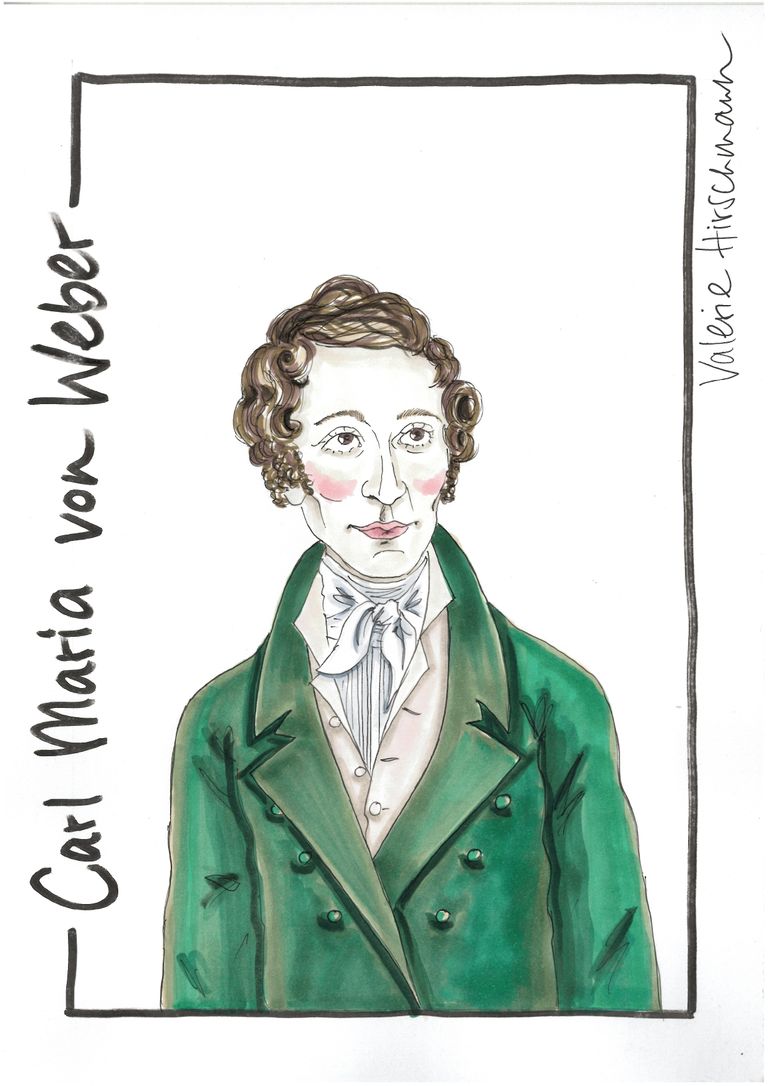 Carl Maria von Weber
Valerie Hirschmann